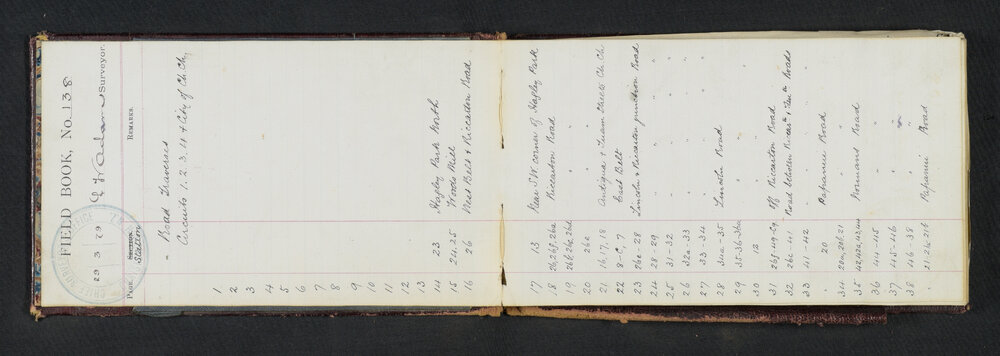 FIELD BOOK, No. 138
29 3 79 Surveyor.
PAGE. SECTION. Station REMARKS.
" Road Traverses
Circuits 1. 2. 3. 4 & City of Ch. Ch.
1
2
3
4
5
6
7
8
9
10
11
12
13
14 23 Hagley Park North
15 24-25 Woods Mill
16 26 West Belt & Riccarton Road
17 13 Near S.W. corner of Hagley Park
18 26, 26f, 26a Riccarton Road "
19 26b, 26c, 26d " "
20 26e " "
21 16, 17, 18 Antigua & Tram Streets Ch. Ch.
22 8-6, 7 East Belt
23 26e-28 Lincoln & Riccarton junction Road
24 28-29 " " "
25 31-32 " " "
26 32a-33 " " "
27 33-34 " " "
28 34a-35 Lincoln Road
29 35-36-36a " "
30 13
31 26g-49-29 Off Riccarton Road
32 26c-41 Road between Riccarn & Roads
33 41-42 " " " "
20 Papanui Road
34 20a, 20b, 21 " "
35 42, 42a, 43, 44 Normans Road
36 44-45 " "
37 45-46 " "
38 46-38 " "
21-21a-21b Papanui Road